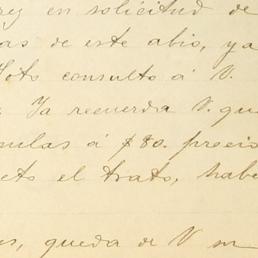 rey en solicitud de
as de este abio, ya
consulto á V.
Ya recuerda V. qu
mulas á $80. precis
el trato, habe
es, queda de V m